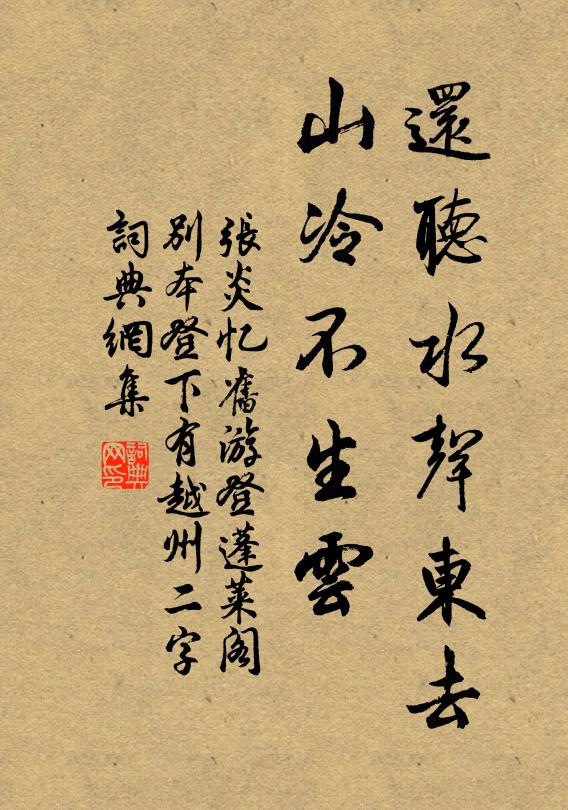 還聽水聲東去
山冷不生雲
張炎忆舊游登蓬萊阁
别本登下有越州二字
詞典網集
詞典网印